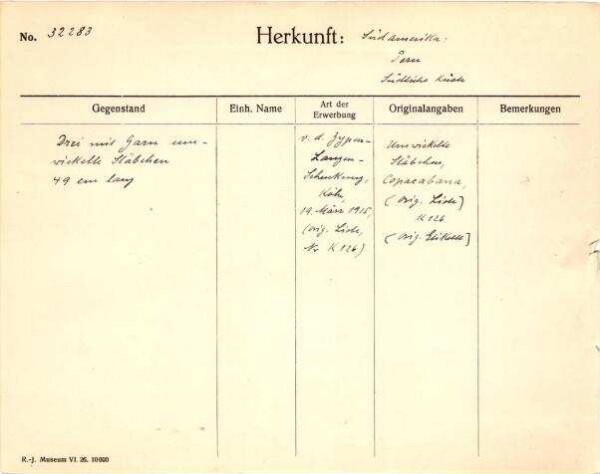 No. 32283
Herkunft: Südamerika:
Peru
Südliche Küste
Gegenstand
Einh. Name
Art der
Erwerbung
Originalangaben
Bemerkungen
Drei mit Garn um-
wickelte Stäbchen
49 cm lang
v. d. Zypen-
Langen-
Schenkung,
Köln,
19. März 1915,
(orig. Liste,
Nr K 126)
Umwickelte
Stäbchen,
Copacabana,
(orig. Liste]
K 126
(orig. Etikette]
R.-J. Museum VI. 26.